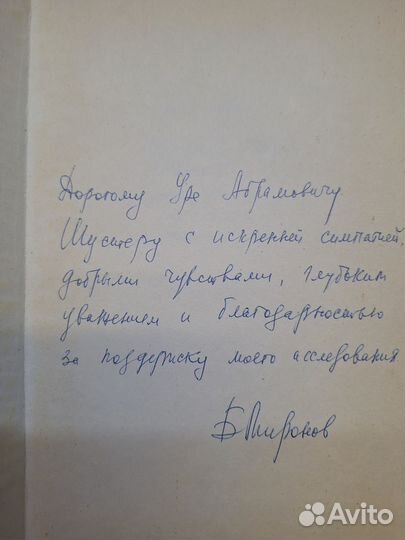 Дорогому Уре Абрамовичу
Шустеру с искренней симпатией,
добрыми чувствами, глубоким
уважением и благодарностью
за поддержку моего исследования
БМиронов
Avito